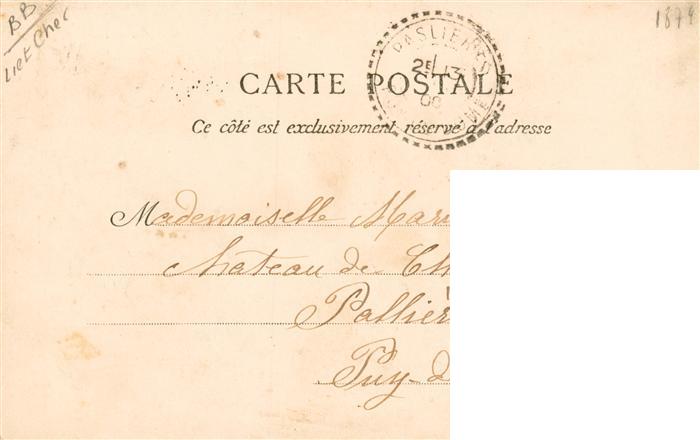 BB
Liet Cher
1874
PASLIERES
2E 13
CARTE POSTALE
Ce côté est exclusivement réservé à l'adresse
Mademoiselle Mar
Château de Ch
Pallièr
Puy-d